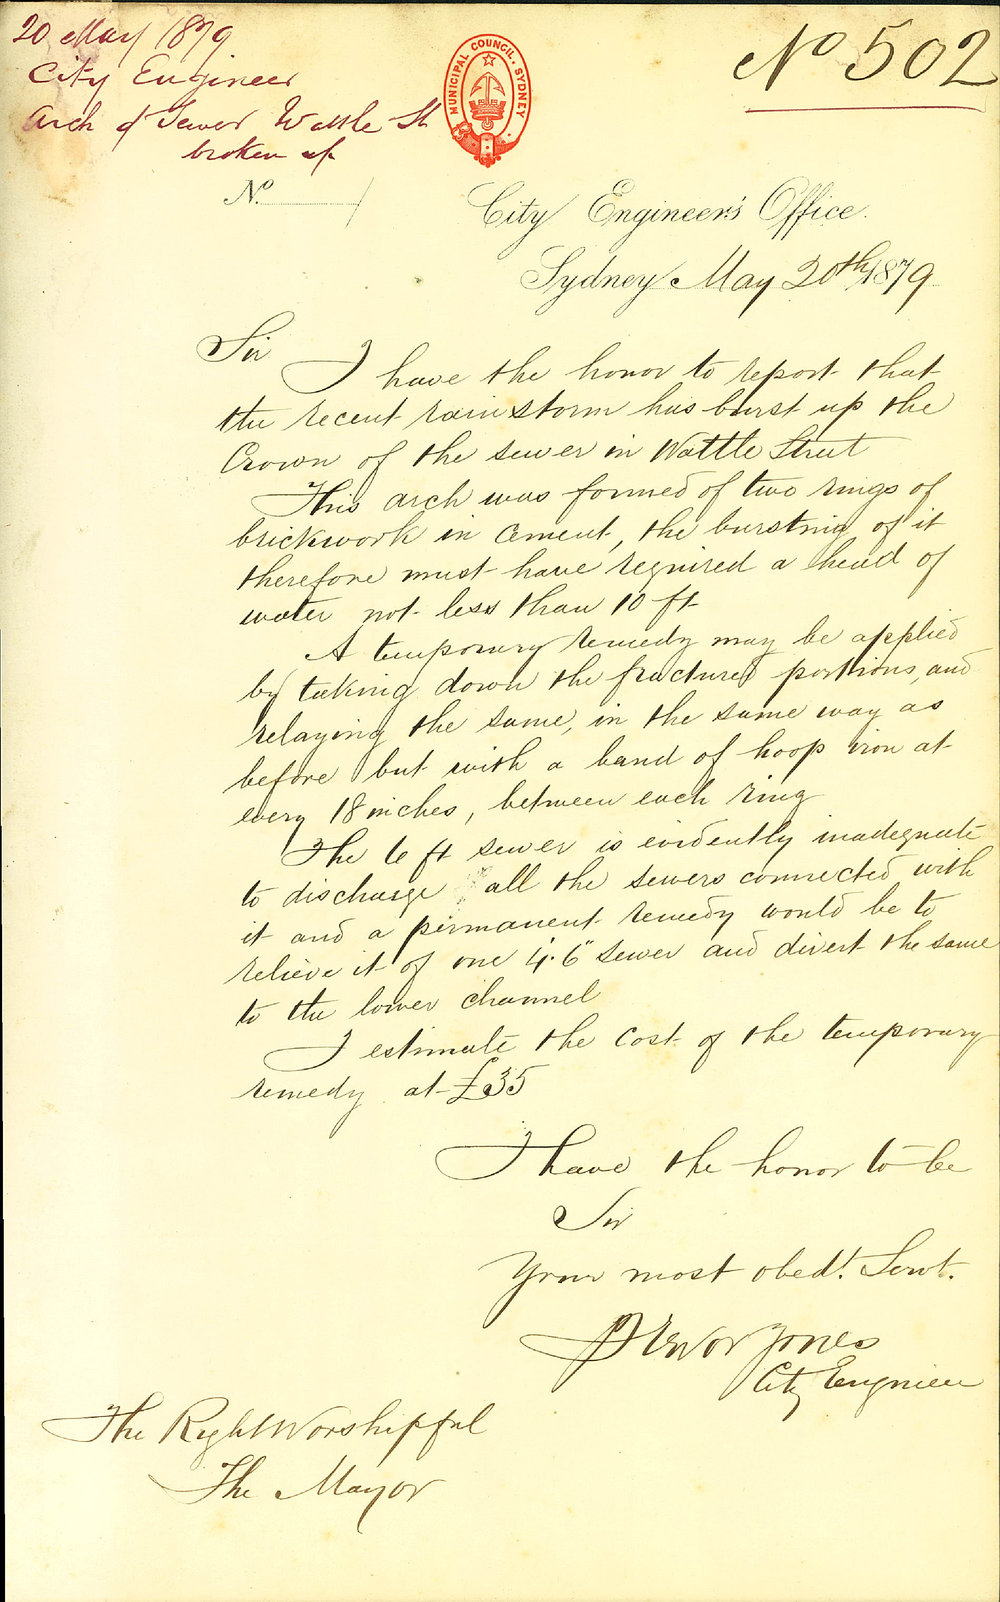 20 May 1879
City Engineer
Arch of Sewer Wattle St
broken up
No 502
MUNICIPAL COUNCIL. SYDNEY
No.
City Engineer's Office.
Sydney May 20th 1879
Sir
I have the honor to report that
the recent rain storm has burst up the
Crown of the sewer in Wattle Street
This arch was formed of two rings of
brickwork in Cement, the bursting of it
therefore must have required a head of
water not less than 10 ft
A temporary remedy may be applied
by taking down the fractured portions, and
relaying the same, in the same way as
before but with a band of hoop iron at
every 18 inches, between each ring
The 6 ft sewer is evidently inadequate
to discharge all the sewers connected with
it and a permanent remedy would be to
relieve it of one 4.6" sewer and divert the same
to the lower channel
I estimate the cost of the temporary
remedy at £35
I have the honor to be
Sir
Your most obedt. Servt.
Trevor Jones
City Engineer
The Right Worshipful
The Mayor